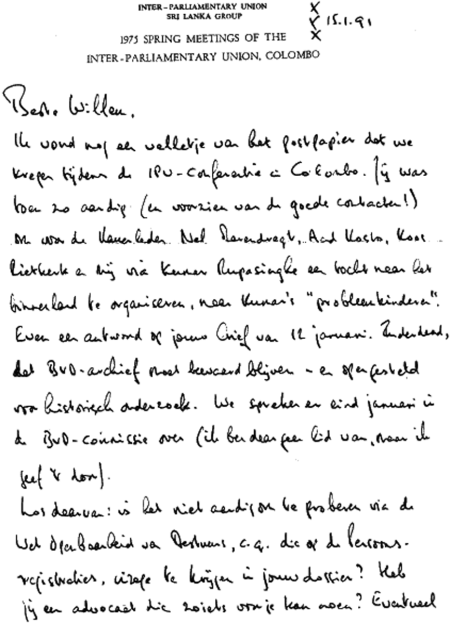 INTER-PARLIAMENTARY UNION
SRI LANKA GROUP
1975 SPRING MEETINGS OF THE
INTER-PARLIAMENTARY UNION, COLOMBO
15.1.91
Beste Willem,
Ik vond nog een velletje van het postpapier dat we
kregen tijdens de IPU-Conferentie in Colombo. Jij was
toen zo aardig (en voorzien van de goede contacten!)
om voor de Kamerleden Nel Barendregt, Aad Kosto, Koos
Rietkerk en mij via Kumar Rupasinghe een tocht naar het
binnenland te organiseren, naar Kumar's "probleemkinderen".
Even een antwoord op jouw brief van 12 januari. Inderdaad,
het BVD-archief moet bewaard blijven - en opengesteld
voor historisch onderzoek. We spreken er eind januari in
de BVD-commissie over (ik ben daar geen lid van, maar ik
geef 't door).
Los daarvan: is het niet aardig om te proberen via de
Wet Openbaarheid van Bestuur, c.q. die op de Persoons-
registraties, inzage te krijgen in jouw dossier? Heb
jij een advocaat die zoiets voor je kan doen? Eventueel